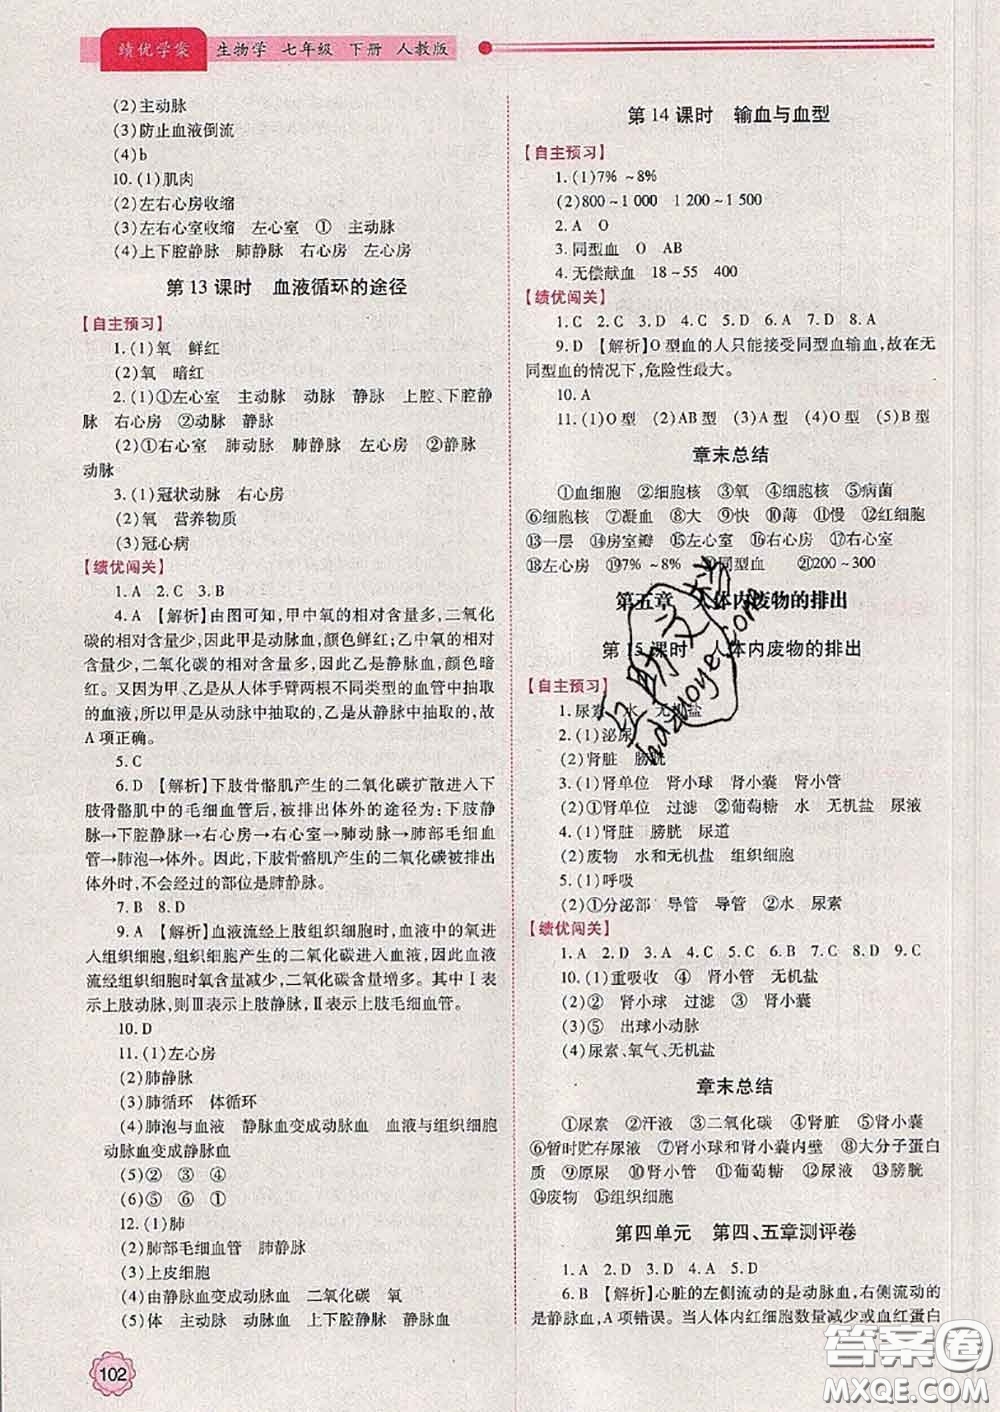 绩优学案 生物学 七年级 下册 人教版
(2)主动脉
(3)防止血液倒流
(4)b
10.(1)肌肉
(2)左右心房收缩
(3)左右心室收缩 左心室 ① 主动脉
(4)上下腔静脉 肺静脉 右心房 左心房
第13课时 血液循环的途径
【自主预习】
1.(1)氧 鲜红
(2)氧 暗红
2.(1)①左心室 主动脉 动脉 静脉 上腔、下腔静
脉 右心房 ②动脉 静脉
(2)①右心室 肺动脉 肺静脉 左心房 ②静脉
动脉
3.(1)冠状动脉 右心房
(2)氧 营养物质
(3)冠心病
【绩优闯关】
1.A 2.C 3.B
4.A 【解析】由图可知,甲中氧的相对含量多,二氧化
碳的相对含量少,因此甲是动脉血,颜色鲜红;乙中氧的相对
含量少,二氧化碳的相对含量多,因此乙是静脉血,颜色暗
红。又因为甲、乙是从人体手臂两根不同类型的血管中抽取
的血液,所以甲是从动脉中抽取的,乙是从静脉中抽取的,故
A项正确。
5.C
6.D 【解析】下肢骨骼肌产生的二氧化碳扩散进入下
肢骨骼肌中的毛细血管后,被排出体外的途径为:下肢静
脉→下腔静脉→右心房→右心室→肺动脉→肺部毛细血
管→肺泡→体外。因此,下肢骨骼肌产生的二氧化碳被排出
体外时,不会经过的部位是肺静脉。
7.B 8.D
9.A 【解析】血液流经上肢组织细胞时,血液中的氧进
入组织细胞,组织细胞产生的二氧化碳进入血液,因此血液
流经组织细胞时氧含量减少,二氧化碳含量增多。其中Ⅰ表
示上肢动脉,则Ⅲ表示上肢静脉,Ⅱ表示上肢毛细血管。
10.D
11.(1)左心房
(2)肺静脉
(3)肺循环 体循环
(4)肺泡与血液 静脉血变成动脉血 血液与组织细胞
动脉血变成静脉血
(5)② ③ ④
(6)⑤ ⑥ ①
12.(1)肺
(2)肺部毛细血管 肺静脉
(3)上皮细胞
(4)由静脉血变成动脉血 二氧化碳 氧
(5)体 主动脉 动脉血 上下腔静脉 静脉血
102
第14课时 输血与血型
【自主预习】
1.(1)7%~8%
(2)800~1 000 1 200~1 500
2.A O
3.同型血 O AB
4.无偿献血 18~55 400
【绩优闯关】
1.C 2.C 3.D 4.C 5.D 6.A 7.D 8.A
9.D 【解析】O型血的人只能接受同型血输血,故在无
同型血的情况下,危险性最大。
10.A
11.(1)O型 (2)AB型 (3)A型 (4)O型 (5)B型
章末总结
①血细胞 ②细胞核 ③氧 ④细胞核 ⑤病菌
⑥细胞核 ⑦凝血 ⑧大 ⑨快 ⑩薄 ⑪慢 ⑫红细胞
⑬一层 ⑭房室瓣 ⑮左心室 ⑯右心房 ⑰右心室
⑱左心房 ⑲7%~8% ⑳同型血 ㉑200~300
第五章 人体内废物的排出
第15课时 人体内废物的排出
【自主预习】
1.尿素 水 无机盐
2.(1)泌尿
(2)肾脏 膀胱
3.(1)肾单位 肾小球 肾小囊 肾小管
(2)①肾单位 过滤 ②葡萄糖 水 无机盐 尿液
4.(1)肾脏 膀胱 尿道
(2)废物 水和无机盐 组织细胞
5.(1)呼吸
(2)①分泌部 导管 导管 ②水 尿素
【绩优闯关】
1.A 2.D 3.A 4.C 5.C 6.B 7.D 8.D 9.C
10.(1)重吸收 ④ 肾小管 无机盐
(2)② 肾小球 过滤 ③ 肾小囊
(3)⑤ 出球小动脉
(4)尿素、氧气、无机盐
章末总结
①尿素 ②汗液 ③二氧化碳 ④肾脏 ⑤肾小囊
⑥暂时贮存尿液 ⑦肾小球和肾小囊内壁 ⑧大分子蛋白
质 ⑨原尿 ⑩肾小管 ⑪葡萄糖 ⑫尿液 ⑬膀胱
⑭废物 ⑮组织细胞
第四单元 第四、五章测评卷
1.A 2.D 3.C 4.A 5.D
6.B 【解析】心脏的左侧流动的是动脉血,右侧流动的
是静脉血,A项错误。当人体内红细胞数量减少或血红蛋白
答案圈
MXQE.COM